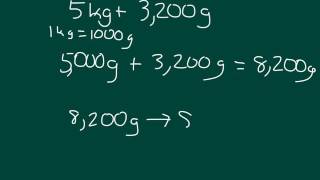 5kg + 3,200g
1kg=1000g
5,000g + 3,200g = 8,200g
8,200g → 8